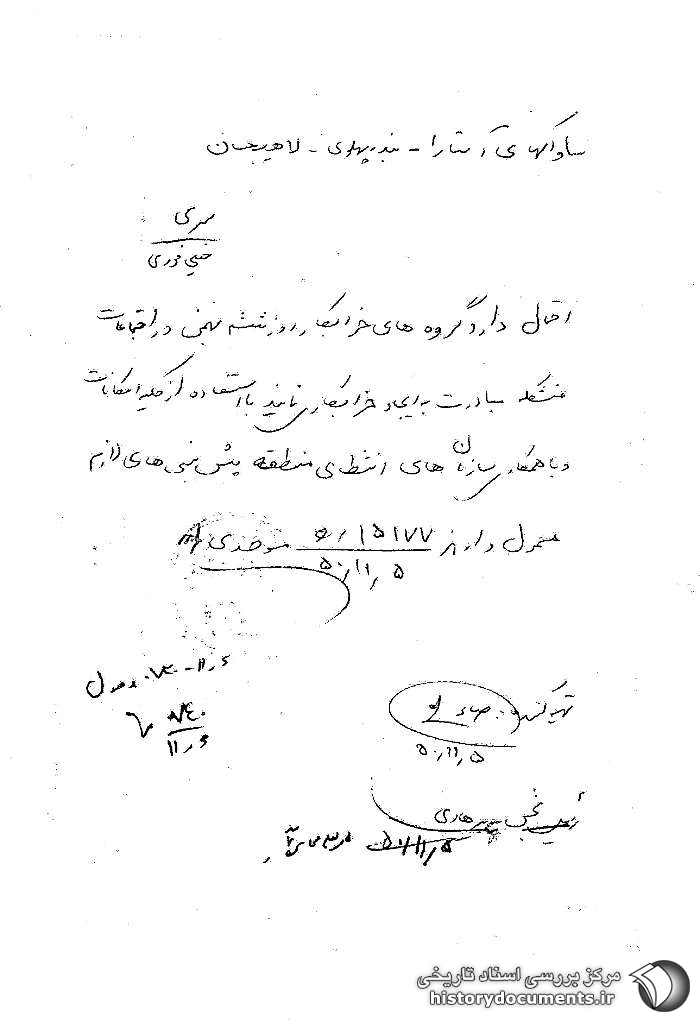 ساواکهای آستارا - بندرپهلوی - لاهیجان
سری
خیلی فوری
احتمال دارد گروه های خرابکار روز ششم بهمن در اجتماعات
متشکله مبادرت به ایجاد خرابکاری نمایند با استفاده از کلیه امکانات
و با همکاری سازمان های انتظامی منطقه پیش بینی های لازم
معمول دارند ۱۵۱۷۷/ه موحدی
۵۰/۱۱/۵
تهیه کننده:
۵۰/۱۱/۵
رئیس بخش
۵۰/۱۱/۵
۷۴۰
۱۱/۶
مرکز بررسی اسناد تاریخی
historydocuments.ir